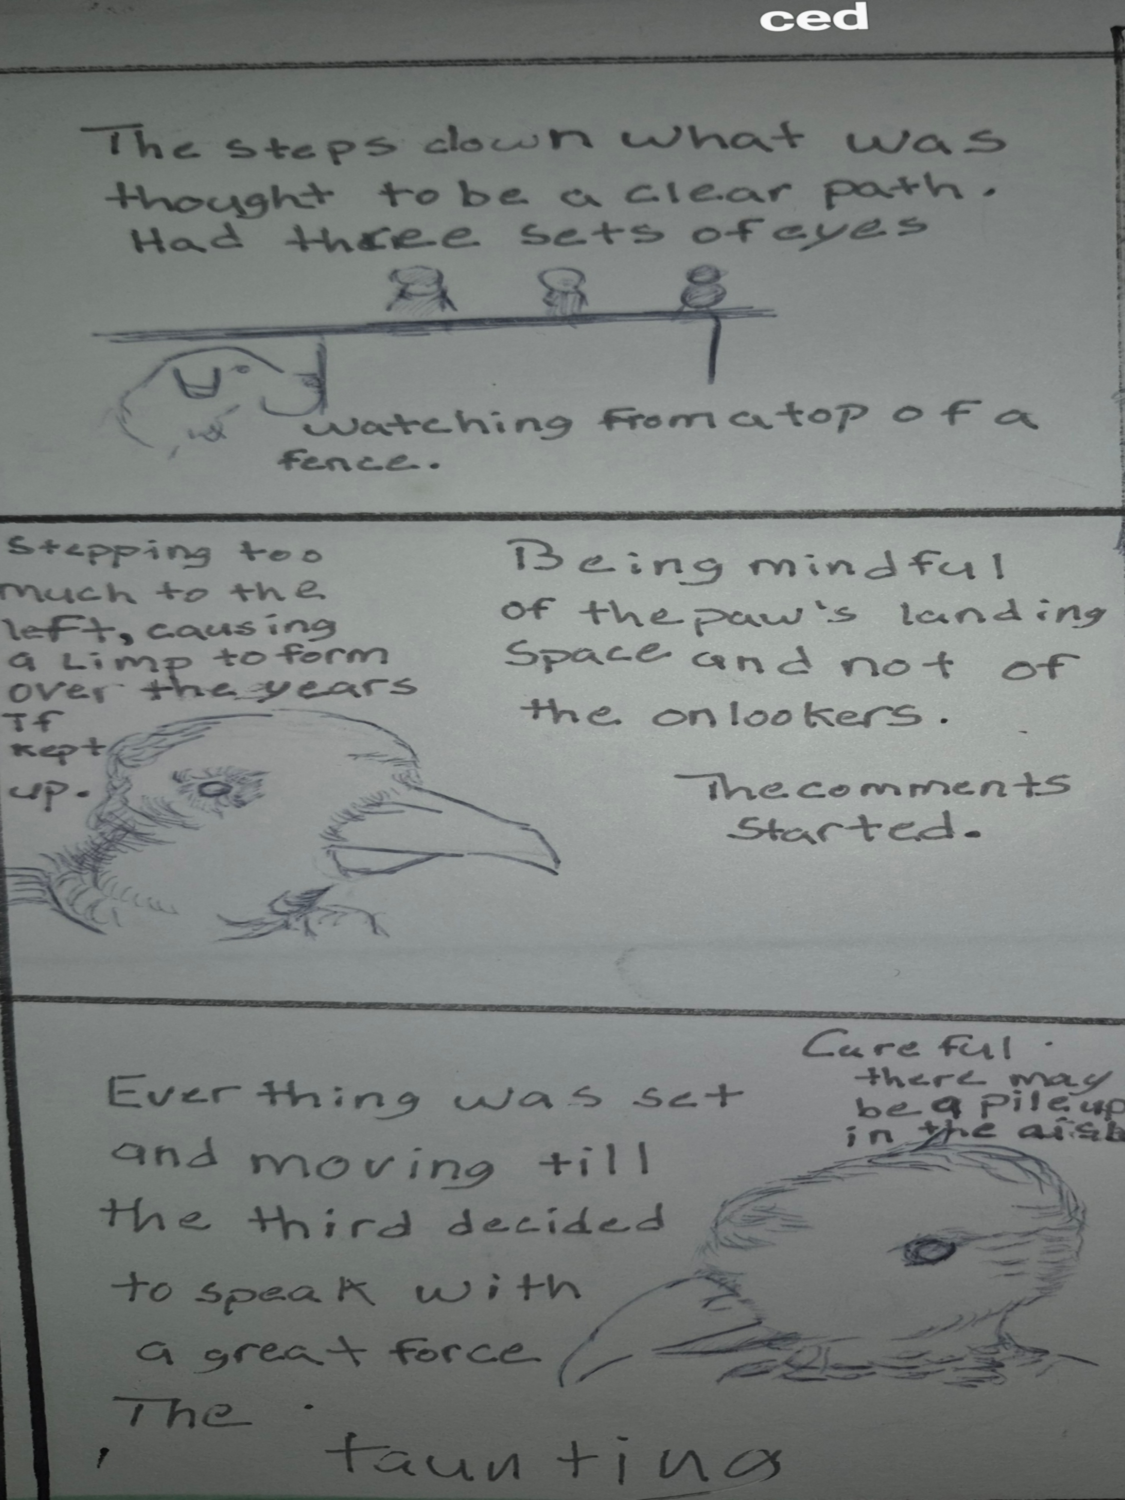 ced
The steps down what was
thought to be a clear path.
Had three sets of eyes
watching from atop of a
fence.
Stepping too
much to the
left, causing
a Limp to form
over the years
If
kept
up.
Being mindful
of the paw's landing
Space and not of
the onlookers.
The comments
Started.
Ever thing was set
and moving till
the third decided
to speak with
a great force
The
taunting
Careful.
there may
be a pile up
in the